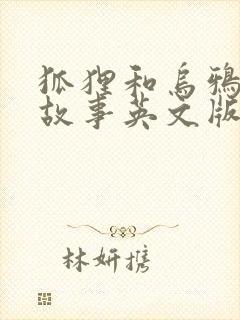 狐狸和乌鸦
故事英文版
林妍携